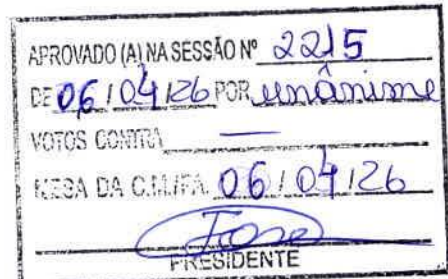 APROVADO (A) NA SESSÃO Nº 2215
DE 06/04/26 POR unânime
VOTOS CONTRA —
MESA DA C.M./FA. 06/04/26
PRESIDENTE